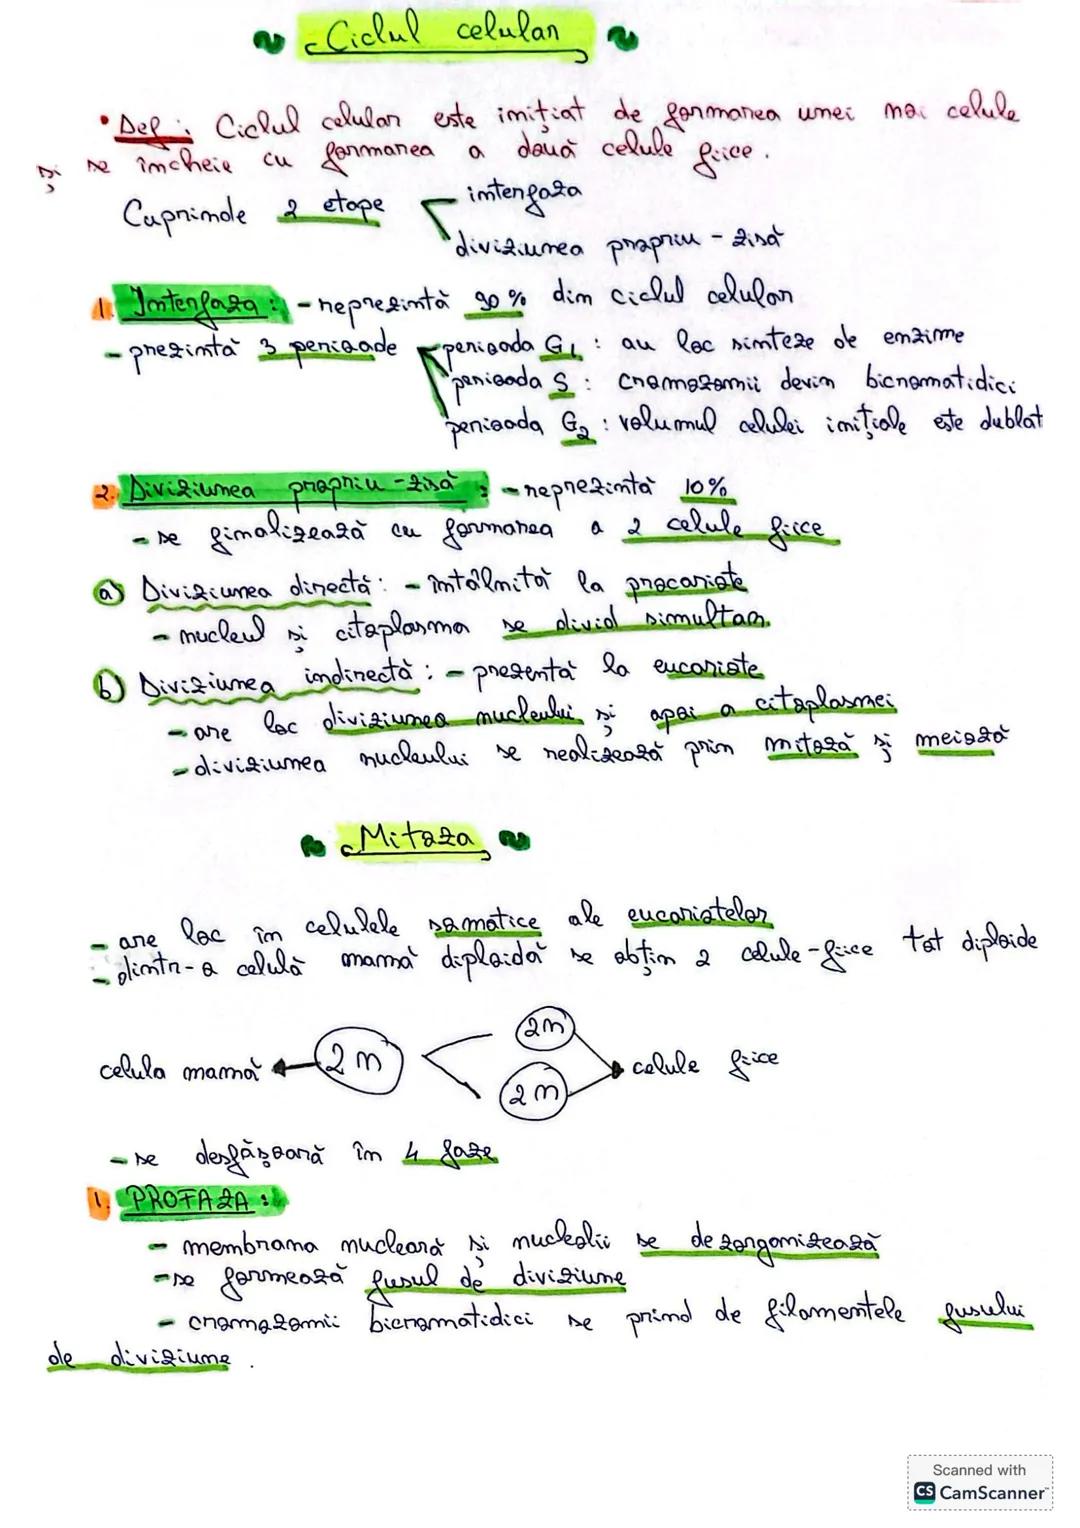 Ciclul celular
• Def: Ciclul celular este inițiat de formarea unei noi celule
și se încheie cu formarea a două celule fiice.
Cuprinde 2 etape
interfaza
diviziunea propriu-zisă
1. Interfaza: - reprezintă 90% din ciclul celular
- prezintă 3 perioade
perioada G1: au loc sinteze de enzime
perioada S: cromozomii devin bicromatidici
perioada G2: volumul celulei inițiale este dublat
2. Diviziunea propriu-zisă: - reprezintă 10%
- se finalizează cu formarea a 2 celule fiice
a) Diviziunea directă: - întâlnită la procariote
- nucleul și citoplasma se divid simultan.
b) Diviziunea indirectă: - prezentă la eucariote
- are loc diviziunea nucleului și apoi a citoplasmei
- diviziunea nucleului se realizează prin mitoză și meioză
Mitoza
- are loc în celulele somatice ale eucariotelor
- dintr-o celulă mamă diploidă se obțin 2 celule-fiice tot diploide
2n
celula mamă 2n celule fiice
2n
- se desfășoară în 4 faze
1. PROFAZA:
- membrana nucleară și nucleolii se dezorganizează
- se formează fusul de diviziune
- cromozomii bicromatidici se prind de filamentele fusului
de diviziune.
Scanned with
CS CamScanner